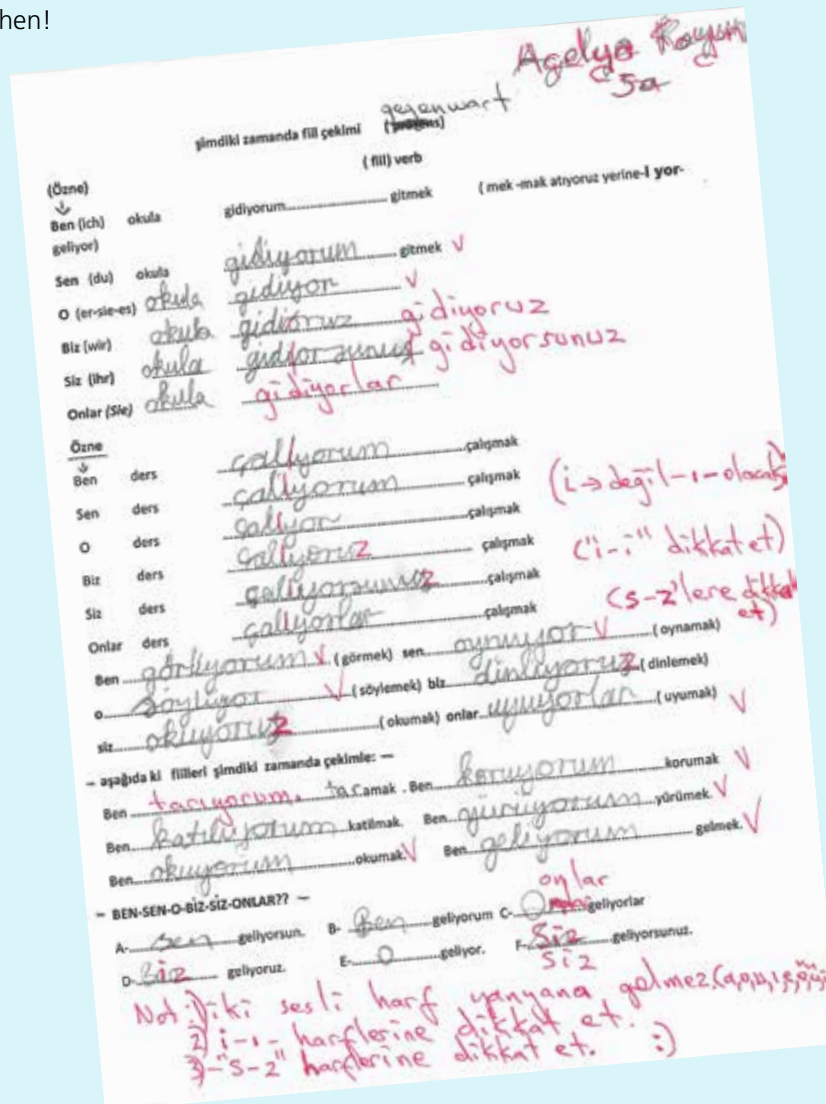 hen!
Açelya
5a
gegenwart
şimdiki zamanda fiil çekimi
( fiil) verb
(Özne)
Ben (ich) okula gidiyorum gitmek ( mek -mak atıyoruz yerine-I yor-
geliyor)
Sen (du) okula gidiyorum gitmek
O (er-sie-es) okula gidiyor
Biz (wir) okula gidioruz gidiyoruz
Siz (ihr) okula gidiyorsunuz
Onlar (Sie) okula gidiyorlar
Özne
Ben ders çalıyorum çalışmak
Sen ders çalıyorum çalışmak (i → değil -ı- olacak)
O ders çalıyor çalışmak
Biz ders çalıyoruz çalışmak ("i-ı" dikkat et)
Siz ders çalıyorsunuz çalışmak
Onlar ders çalıyorlar çalışmak (s-z'lere dikkat et)
Ben görüyorum ( görmek) sen oynuyor ( oynamak)
o söylüyor ( söylemek) biz dinliyoruz ( dinlemek)
siz okuyoruz ( okumak) onlar uyuyorlar ( uyumak)
– aşağıda ki fiilleri şimdiki zamanda çekimle: —
Ben tarıyorum. taramak . Ben koruyorum korumak
Ben katılıyorum katilmak. Ben yürüyorum yürümek.
Ben okuyorum okumak. Ben geliyorum gelmek.
– BEN-SEN-O-BİZ-SİZ-ONLAR?? –
onlar
A- Sen geliyorsun. B- Ben geliyorum C- geliyorlar
D- Biz geliyoruz. E- O geliyor. F- Siz geliyorsunuz.
Siz
Not: 1) iki sesli harf yanyana gelmez
2) i-ı- harflerine dikkat et.
3)-"s-z" harflerine dikkat et. :)